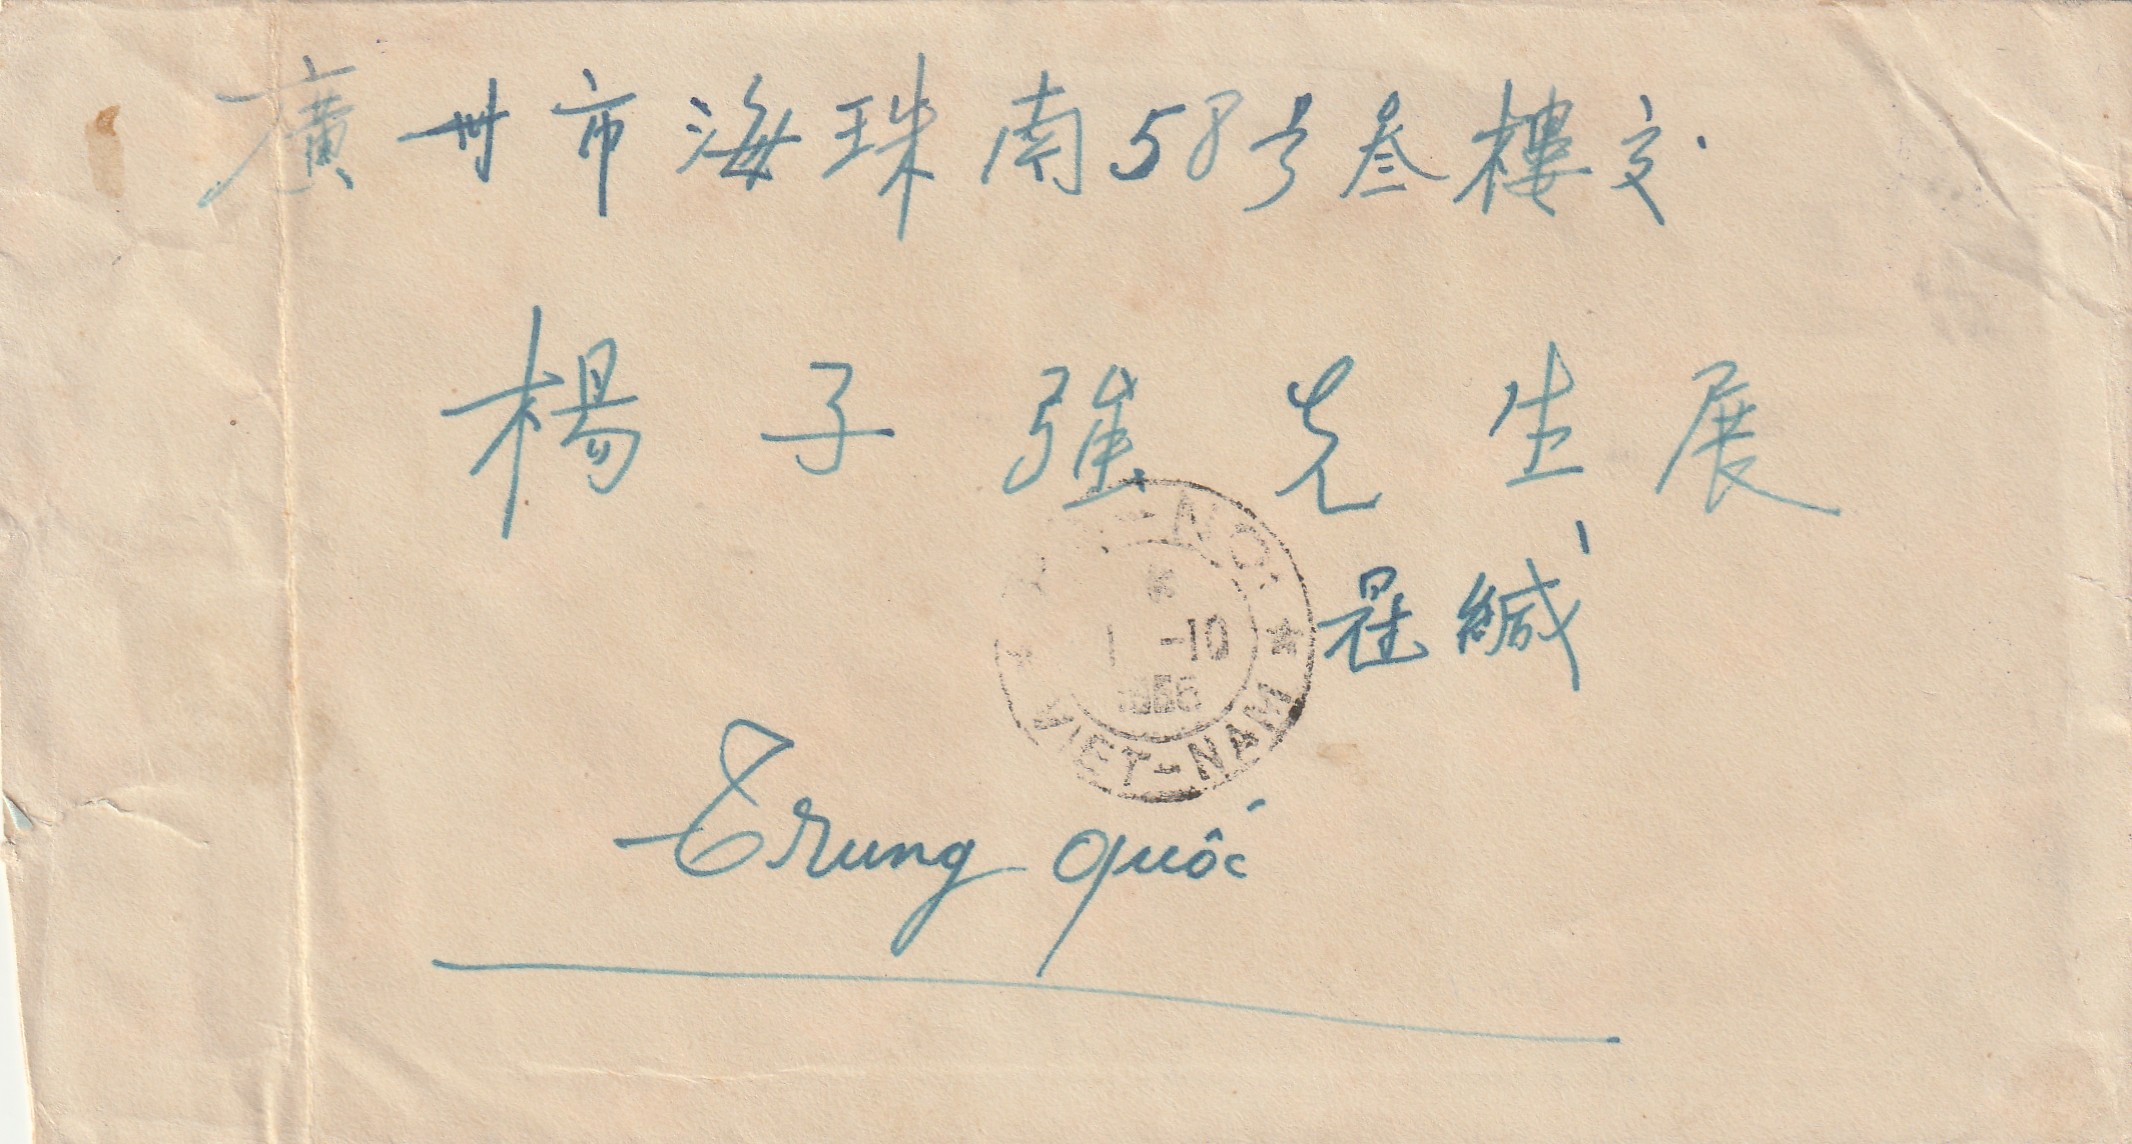 廣州市海珠南58号叁樓交
楊子強先生展
緘
NOI
1 -10
VIET-NAM
Trung quốc